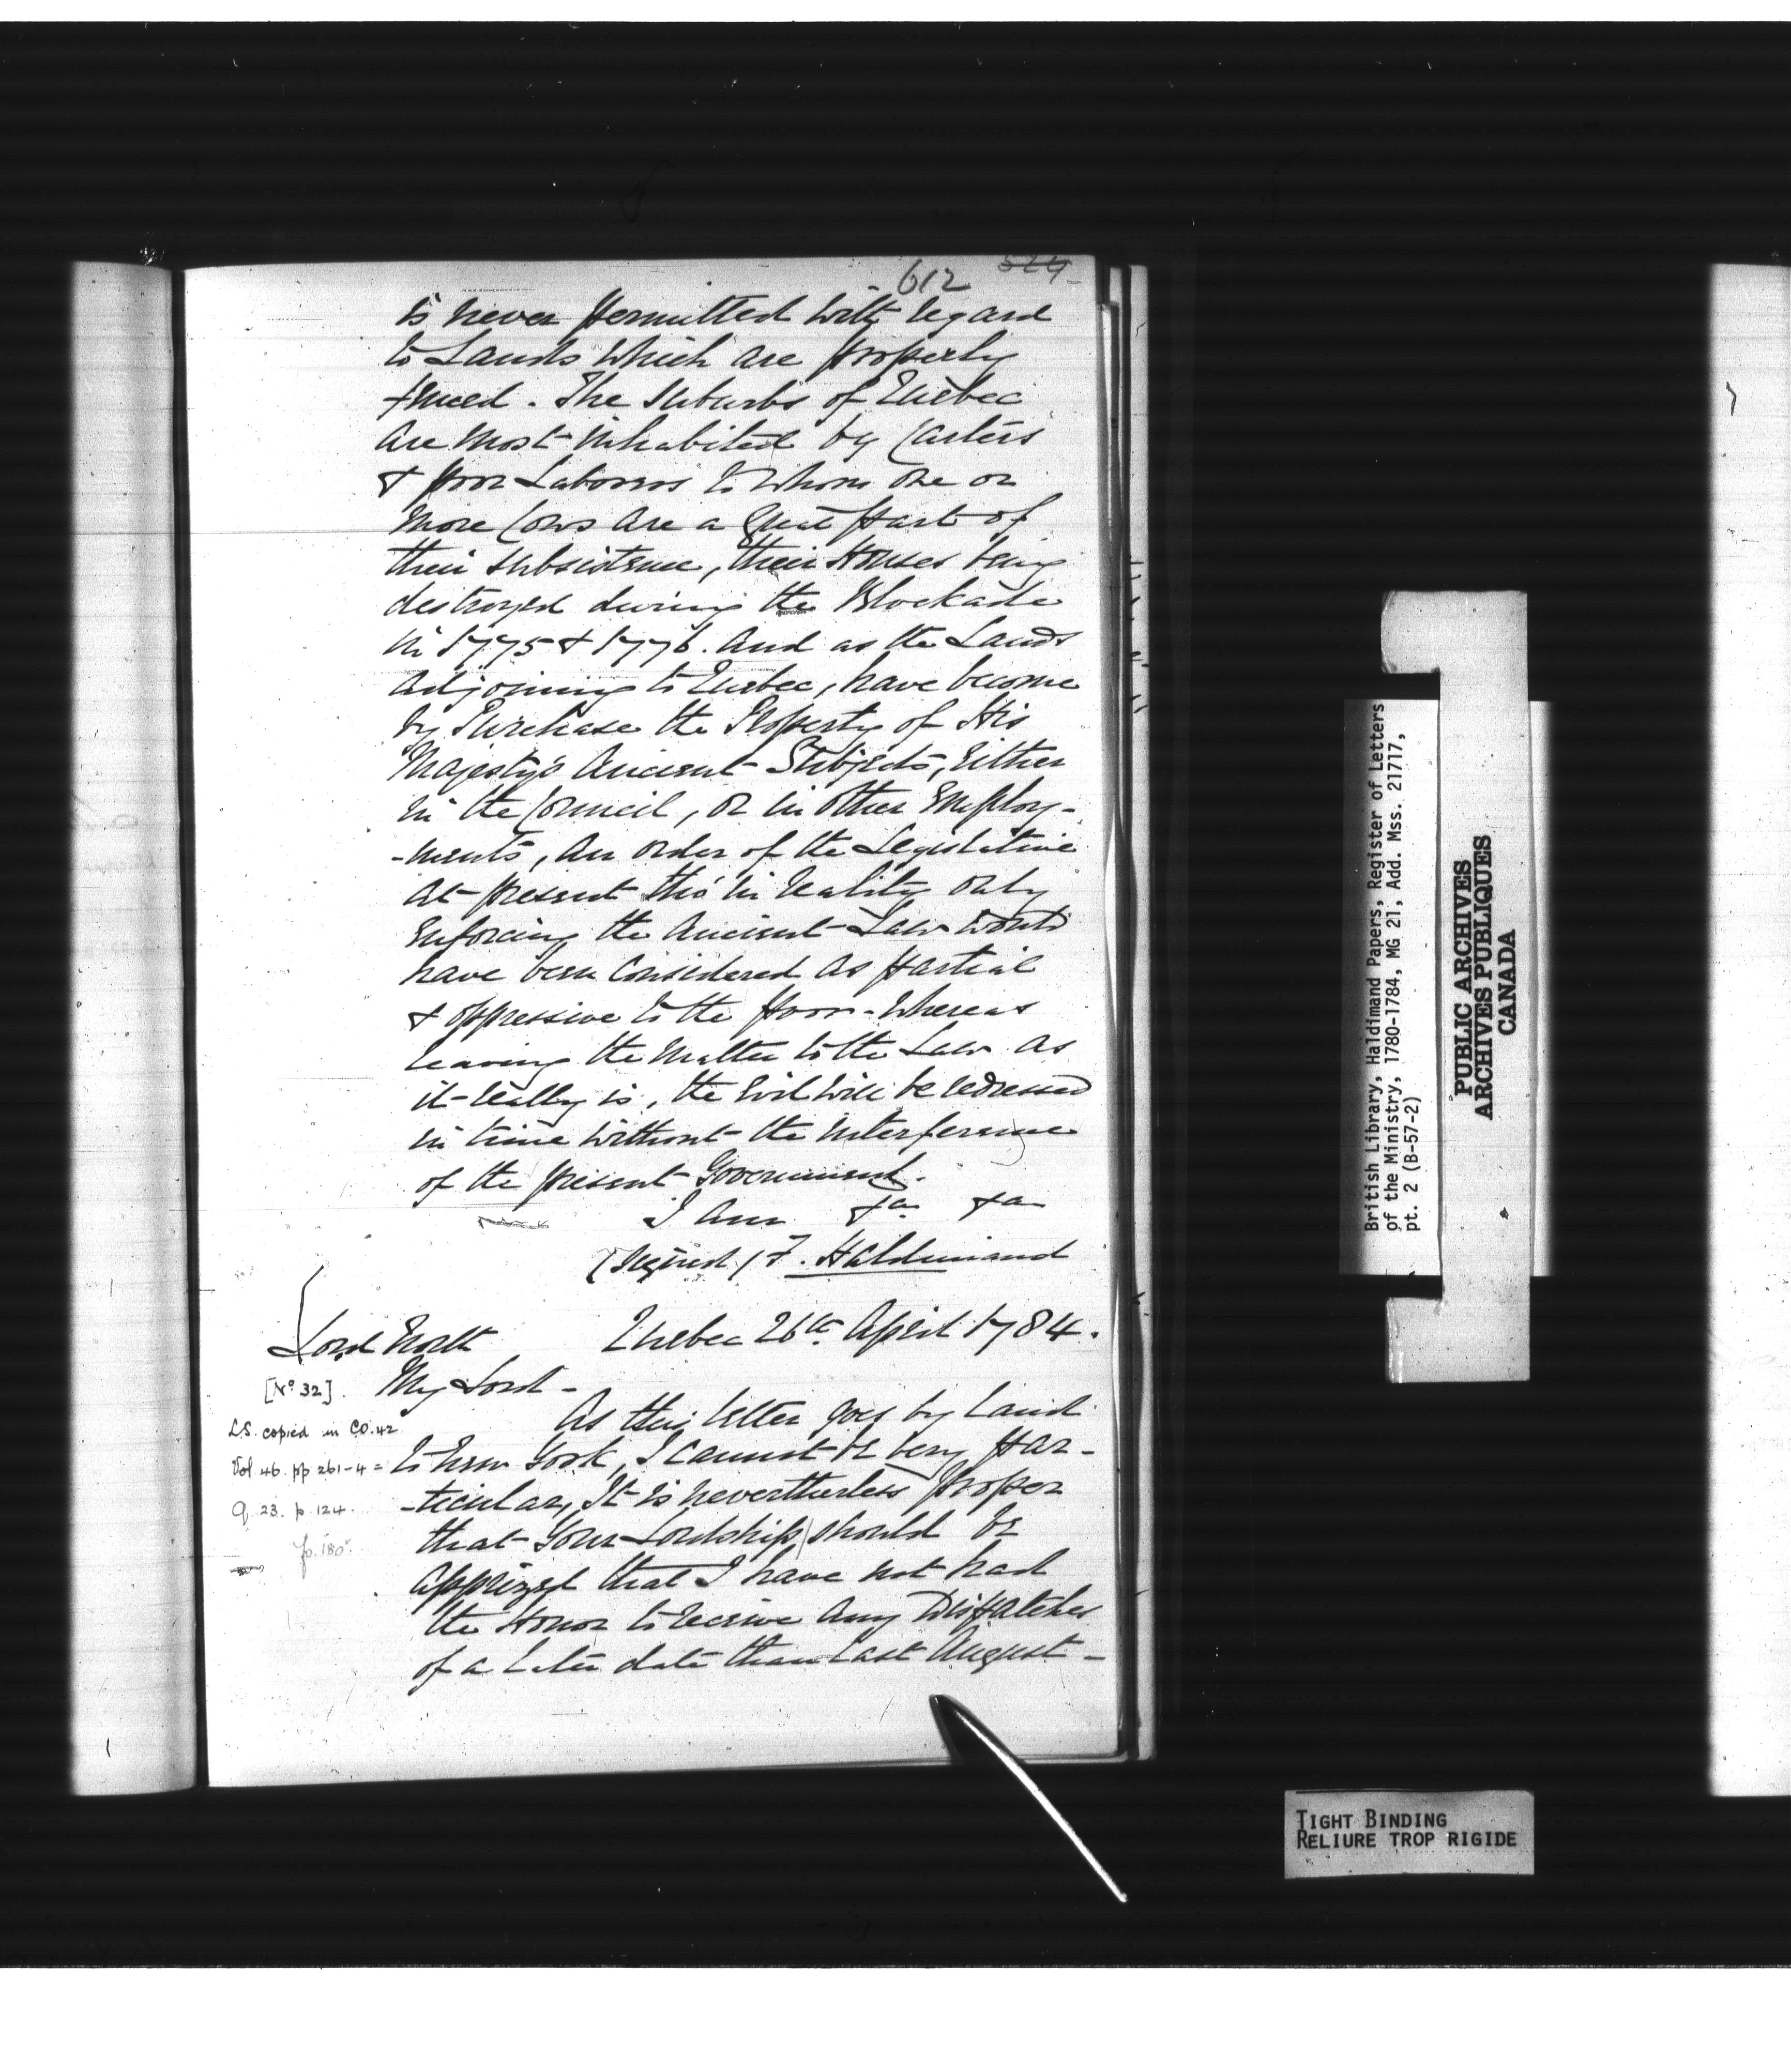 612 524
is never permitted with regard
to Lands which are properly
fenced. The suburbs of Quebec
are most inhabited by Carters
& poor Laborers to whom one or
more Cows are a great part of
their subsistence, their Houses being
destroyed during the Blockade
in 1775 & 1776. And as the Lands
adjoining to Quebec, have become
by Purchase the Property of His
Majesty's Ancient Subjects, either
in the Council, or in other Employ-
-ments, an order of the Legislative
at present tho' in reality only
enforcing the Ancient Law would
have been Considered as partial
& oppressive to the poor - whereas
leaving the matter to the Law as
it really is, the Evil will be redressed
in time without the interference
of the present Government.
I am &ca &ca
(signed) F. Haldimand
Lord North Quebec 26th April 1784.
[No 32]. My Lord -
As this letter goes by Land
L.S. copied in CO.42
to New York, I cannot be very par-
Vol. 46. pp 261-4 =
-ticular, It is nevertheless proper
Q. 23. p. 124.
that Your Lordship should be
p. 180
apprized that I have not had
the Honor to receive any Dispatches
of a later date than last August -
British Library, Haldimand Papers, Register of Letters
of the Ministry, 1780-1784, MG 21, Add. Mss. 21717,
pt. 2 (B-57-2)
PUBLIC ARCHIVES
ARCHIVES PUBLIQUES
CANADA
TIGHT BINDING
RELIURE TROP RIGIDE